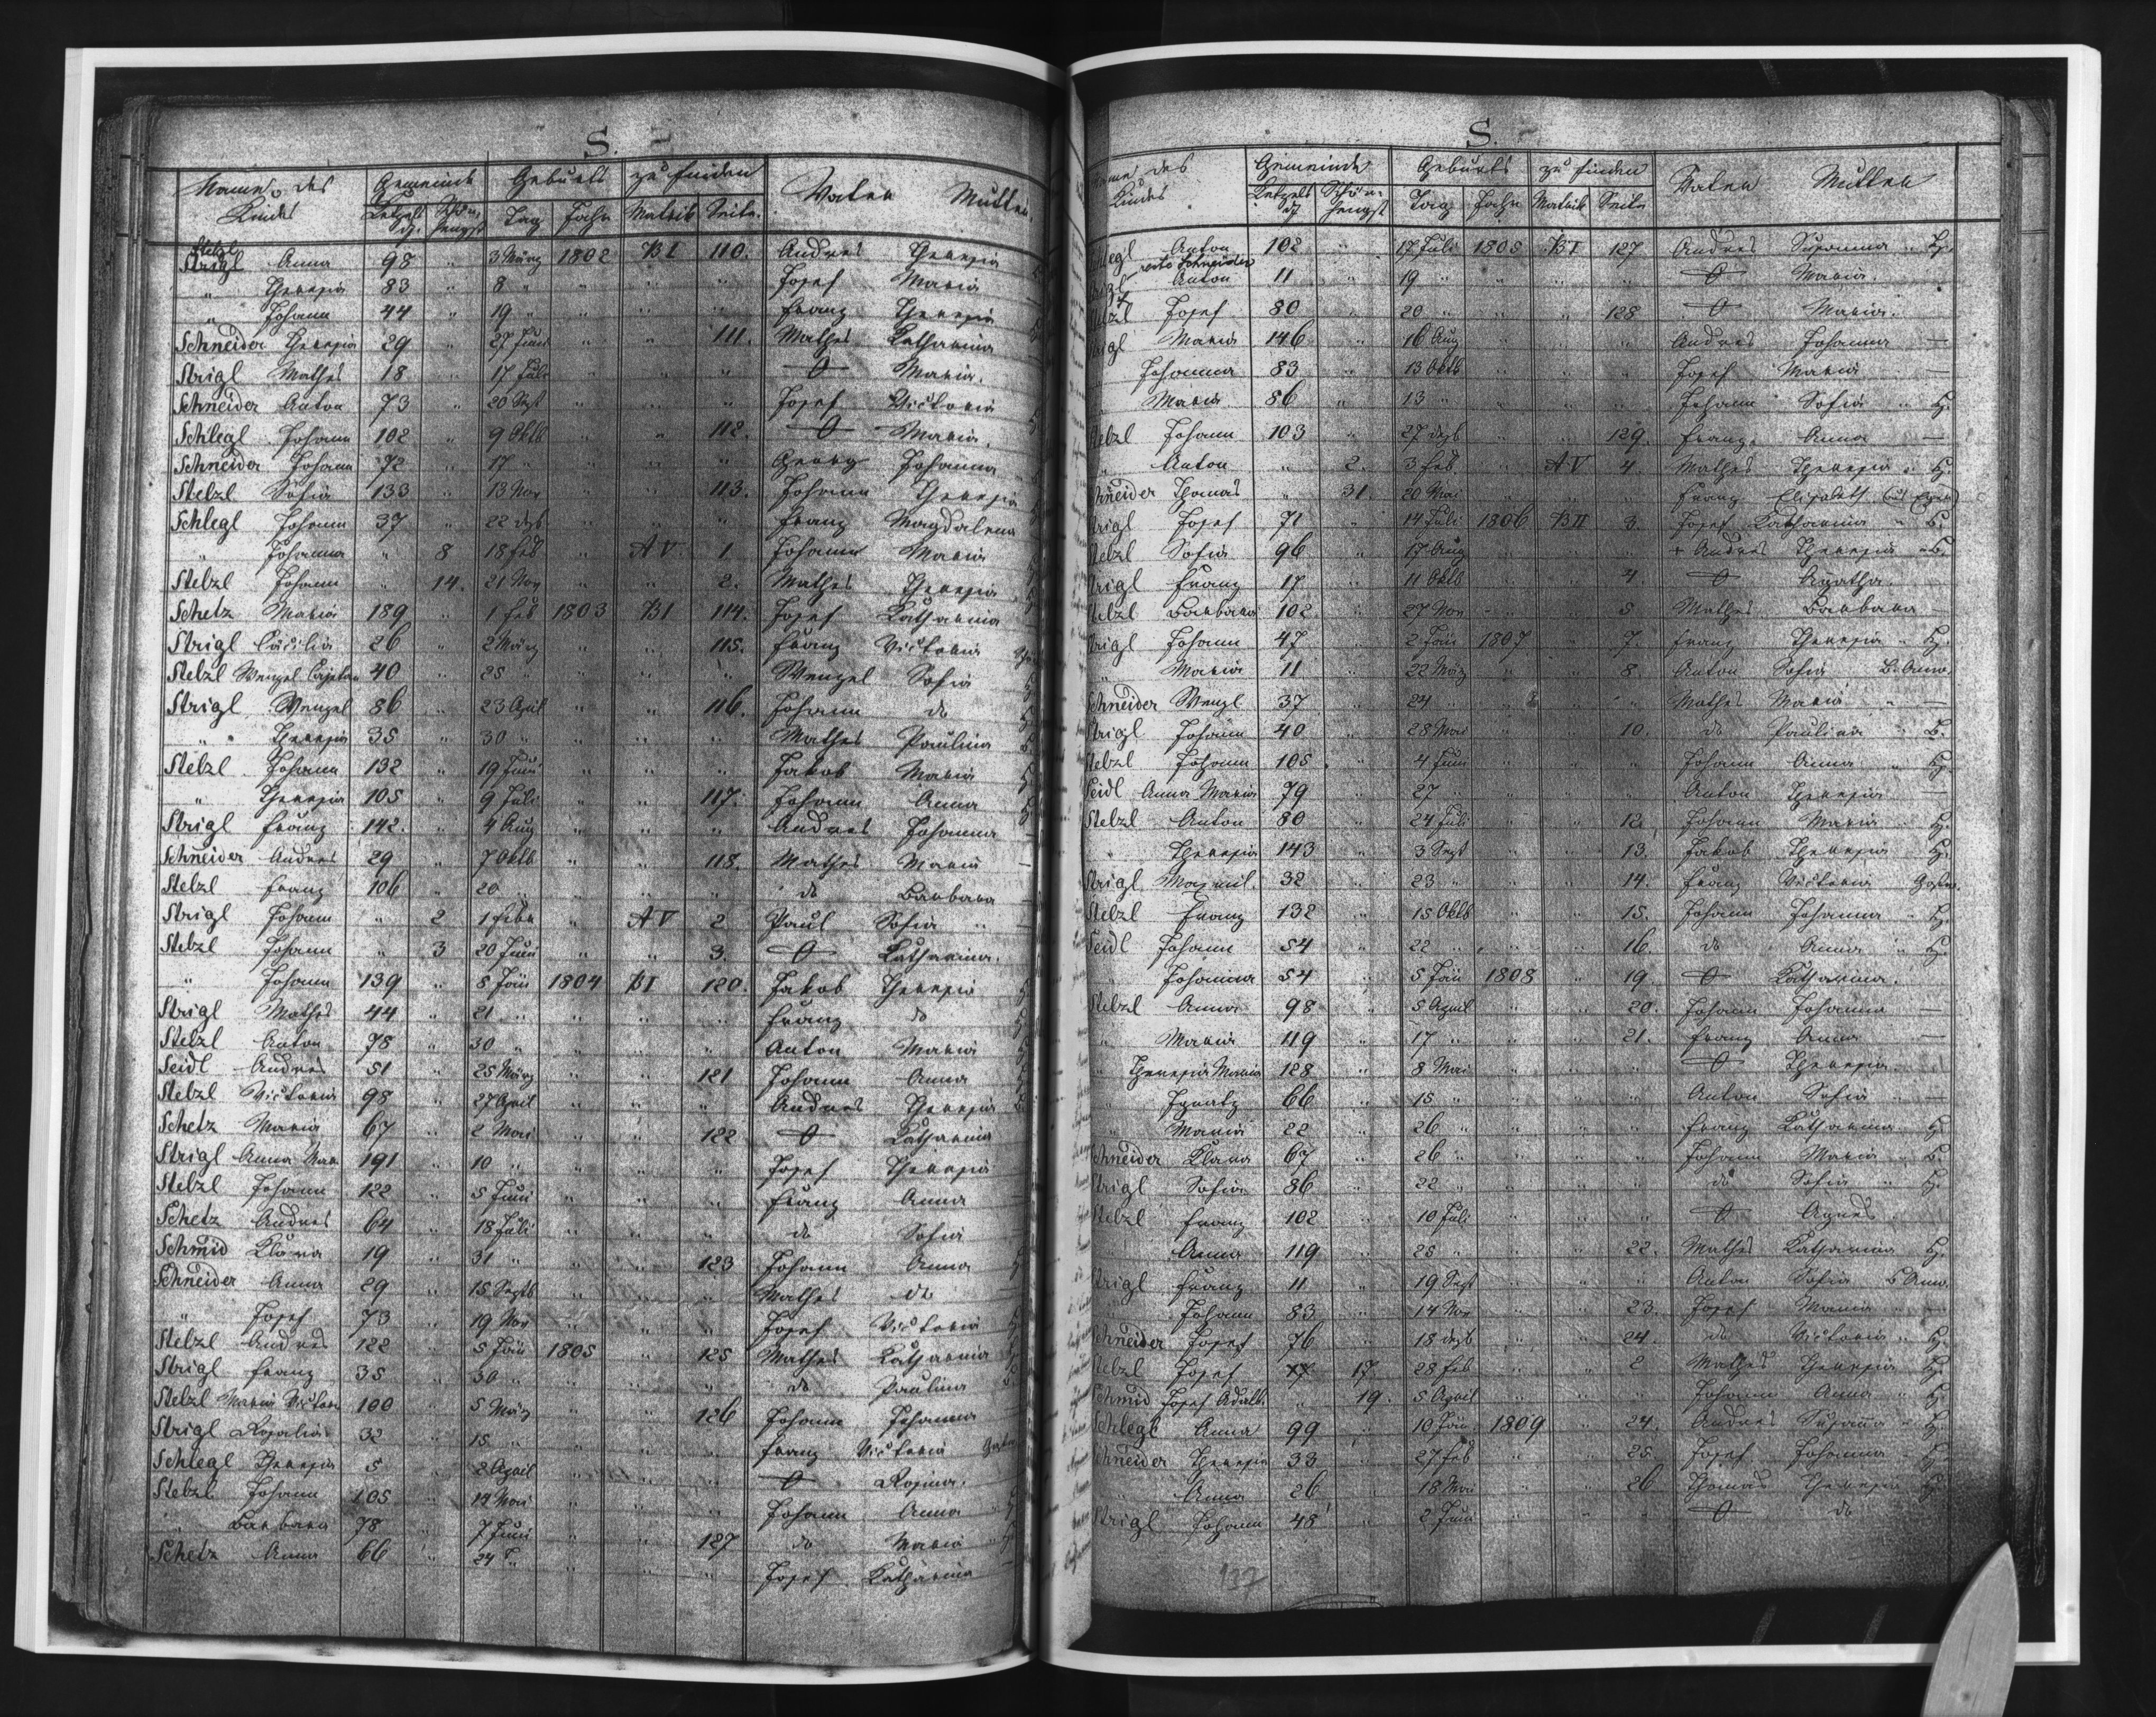 S.
Name des Kindes Gemeinde Geburts zu finden Vater Mutter
Ketzelsdf. Schönhengst Tag Jahr Matrik Seite
Stelzl
Strigl Anna 98 " 3 März 1802 B I 110. Andres Theresia
" Theresia 83 " 8 " " " " Josef Maria
" Johann 44 " 19 " " " " Franz Theresia
Schneider Theresia 29 " 27 Juni " " 111. Mathes Katharina
Strigl Mathes 18 " 17 Juli " " " O Maria.
Schneider Anton 73 " 20 Sept " " " Josef Victoria
Schlegl Johann 102 " 9 Oktb " " 112. O Maria.
Schneider Johann 72 " 17 " " " " Georg Johanna
Stelzl Sofia 133 " 13 Nov " " 113. Johann Theresia
Schlegl Johann 37 " 22 dezb " " " Franz Magdalena
" Johanna " 8 18 Feb " A V 1. Johann Maria
Stelzl Johann " 14. 21 Nov " " 2. Mathes Theresia
Schetz Maria 189 " 1 Feb 1803 B I 114. Josef Katharina
Strigl Cäcilia 26 " 2 März " " 115. Franz Victoria
Stelzl Wenzel Cajetan 40 " 25 " " " " Wenzel Sofia
Strigl Wenzel 86 " 23 April " " 116. Johann do
" Theresia 35 " 30 " " " " Mathes Paulina
Stelzl Johann 132 " 19 Juni " " " Jakob Maria
" Theresia 105 " 9 Juli " " 117. Johann Anna
Strigl Franz 142. " 4 Aug " " " Andres Johanna
Schneider Andres 29 " 7 Oktb " " 118. Mathes Maria
Stelzl Franz 106 " 20 " " " " do Barbara
Strigl Johann " 2 1 Febr " A V 2 Paul Sofia
Stelzl Johann " 3 20 Juni " " 3. O Katharina.
" Johann 139 " 8 Jän 1804 B I 120. Jakob Theresia
Strigl Mathes 44 " 21 " " " " Franz do
Stelzl Anton 78 " 30 " " " " Anton Maria
Seidl Andres 51 " 25 März " " 121 Johann Anna
Stelzl Victoria 98 " 27 April " " " Andres Theresia
Schetz Maria 67 " 2 Mai " " 122 O Katharina
Strigl Anna Mar. 191 " 10 " " " " Josef Theresia
Stelzl Johann 122 " 5 Juni " " " Franz Anna
Schetz Andres 64 " 18 Juli " " " do Sofia
Schmid Klara 19 " 31 " " " 123 Johann Anna
Schneider Anna 29 " 15 Septb " " " Mathes do
" Josef 73 " 19 Nov " " " Josef Victoria
Stelzl Andres 122 " 5 Jän 1805 " 125 Mathes Katharina
Strigl Franz 35 " 30 " " " " do Paulina
Stelzl Maria Victoria 100 " 5 März " " 126 Johann Johanna
Strigl Rosalia 32 " 15 " " " " Franz Victoria
Schlegl Theresia 5 " 2 April " " " O Rosina.
Stelzl Johann 105 " 14 Mai " " " Johann Anna
" Barbara 78 " 7 Juni " " 127 do Maria
Schetz Anna 66 " 24 " " " " Josef Katharina
S.
Name des Kindes Gemeinde Geburts zu finden Vater Mutter
Ketzelsdf Schönhengst Tag Jahr Matrik Seite
legl Anton 102 " 17 Juli 1805 B I 127 Andres Susanna " H.
recte Schneider
Anton 11 " 19 " " " " O Maria.
Stelzl Josef 80 " 20 " " " 128 O Maria.
Strigl Maria 146 " 16 Aug " " " Andres Johanna —
Johanna 83 " 13 Oktb " " " Josef Maria —
" Maria 86 " 13 " " " " Johann Sofia " H.
Stelzl Johann 103 " 27 dezb " " 129. Franz Anna —
" Anton " 2. 3 Feb " A V 4. Mathes Theresia " H.
Schneider Thomas " 31. 20 Mai " " " Franz Elisabeth
Strigl Josef 71 " 14 Juli 1806 B II 3. Josef Katharina " B.
Stelzl Sofia 96 " 17 Aug " " " + Andres Theresia " B.
Strigl Franz 17 " 11 Oktb " " 4 O Agatha.
Stelzl Barbara 102. " 27 Nov " " 5 Mathes Barbara —
Strigl Johann 47 " 2 Jän 1807 " 7. Franz Theresia H.
" Maria 11 " 22 März " " 8 Anton Sofia
Schneider Wenzl 37 " 24 " " " " Mathes Maria " —
Strigl Johann 40 " 28 Mai " " 10. do Paulina " B.
Stelzl Johann 105 " 4 Juni " " " Johann Anna " H.
Seidl Anna Maria 79 " 27 " " " " Anton Theresia —
Stelzl Anton 80 " 24 Juli " " 12. Johann Maria " H.
" Theresia 143 " 3 Sept " " 13. Jakob Theresia H.
Strigl Maximil. 32 " 23 " " " 14. Franz Victoria
Stelzl Franz 132 " 15 Oktb " " 15. Johann Johanna " H.
Seidl Johann 54 " 22 " " " 16. do Anna " H.
" Johanna 54 " 5 Jän 1808 " 19. O Katharina.
Stelzl Anna 98 " 5 April " " 20. Johann Johanna —
" Maria 119 " 17 " " " 21. Franz Anna —
" Theresia Maria 128 " 8 Mai " " " O Theresia.
" Ignatz 66 " 15 " " " " Anton Sofia " —
" Maria 22 " 26 " " " " Franz Katharina " H.
Schneider Klara 67 " 26 " " " " Johann Maria " B.
Strigl Sofia 86 " 22 " " " " do Sofia " H.
Stelzl Franz 102 " 10 Juli " " " O Agnes.
" Anna 119 " 25 " " " 22. Mathes Katharina H.
Strigl Franz 11 " 19 Sept " " " Anton Sofia
" Johann 83 " 14 Nov " " 23. Josef Maria " —
Schneider Josef 76 " 18 dezb " " 24. do Victoria " H.
Stelzl Josef 17. 28 Feb " " 2 Mathes Theresia H.
Schmid Josef Adalb. " 19. 5 April " " " Johann Anna " H.
Schlegl Anna 99 " 10 Jän 1809 " 24. Andres Susanna " H.
Schneider Theresia 33 " 27 Feb " " 25. Josef Johanna " H.
" Anna 26 " 18 Mai " " 26 Thomas Theresia H.
Strigl Johann 48 " 2 Juni " " " O do